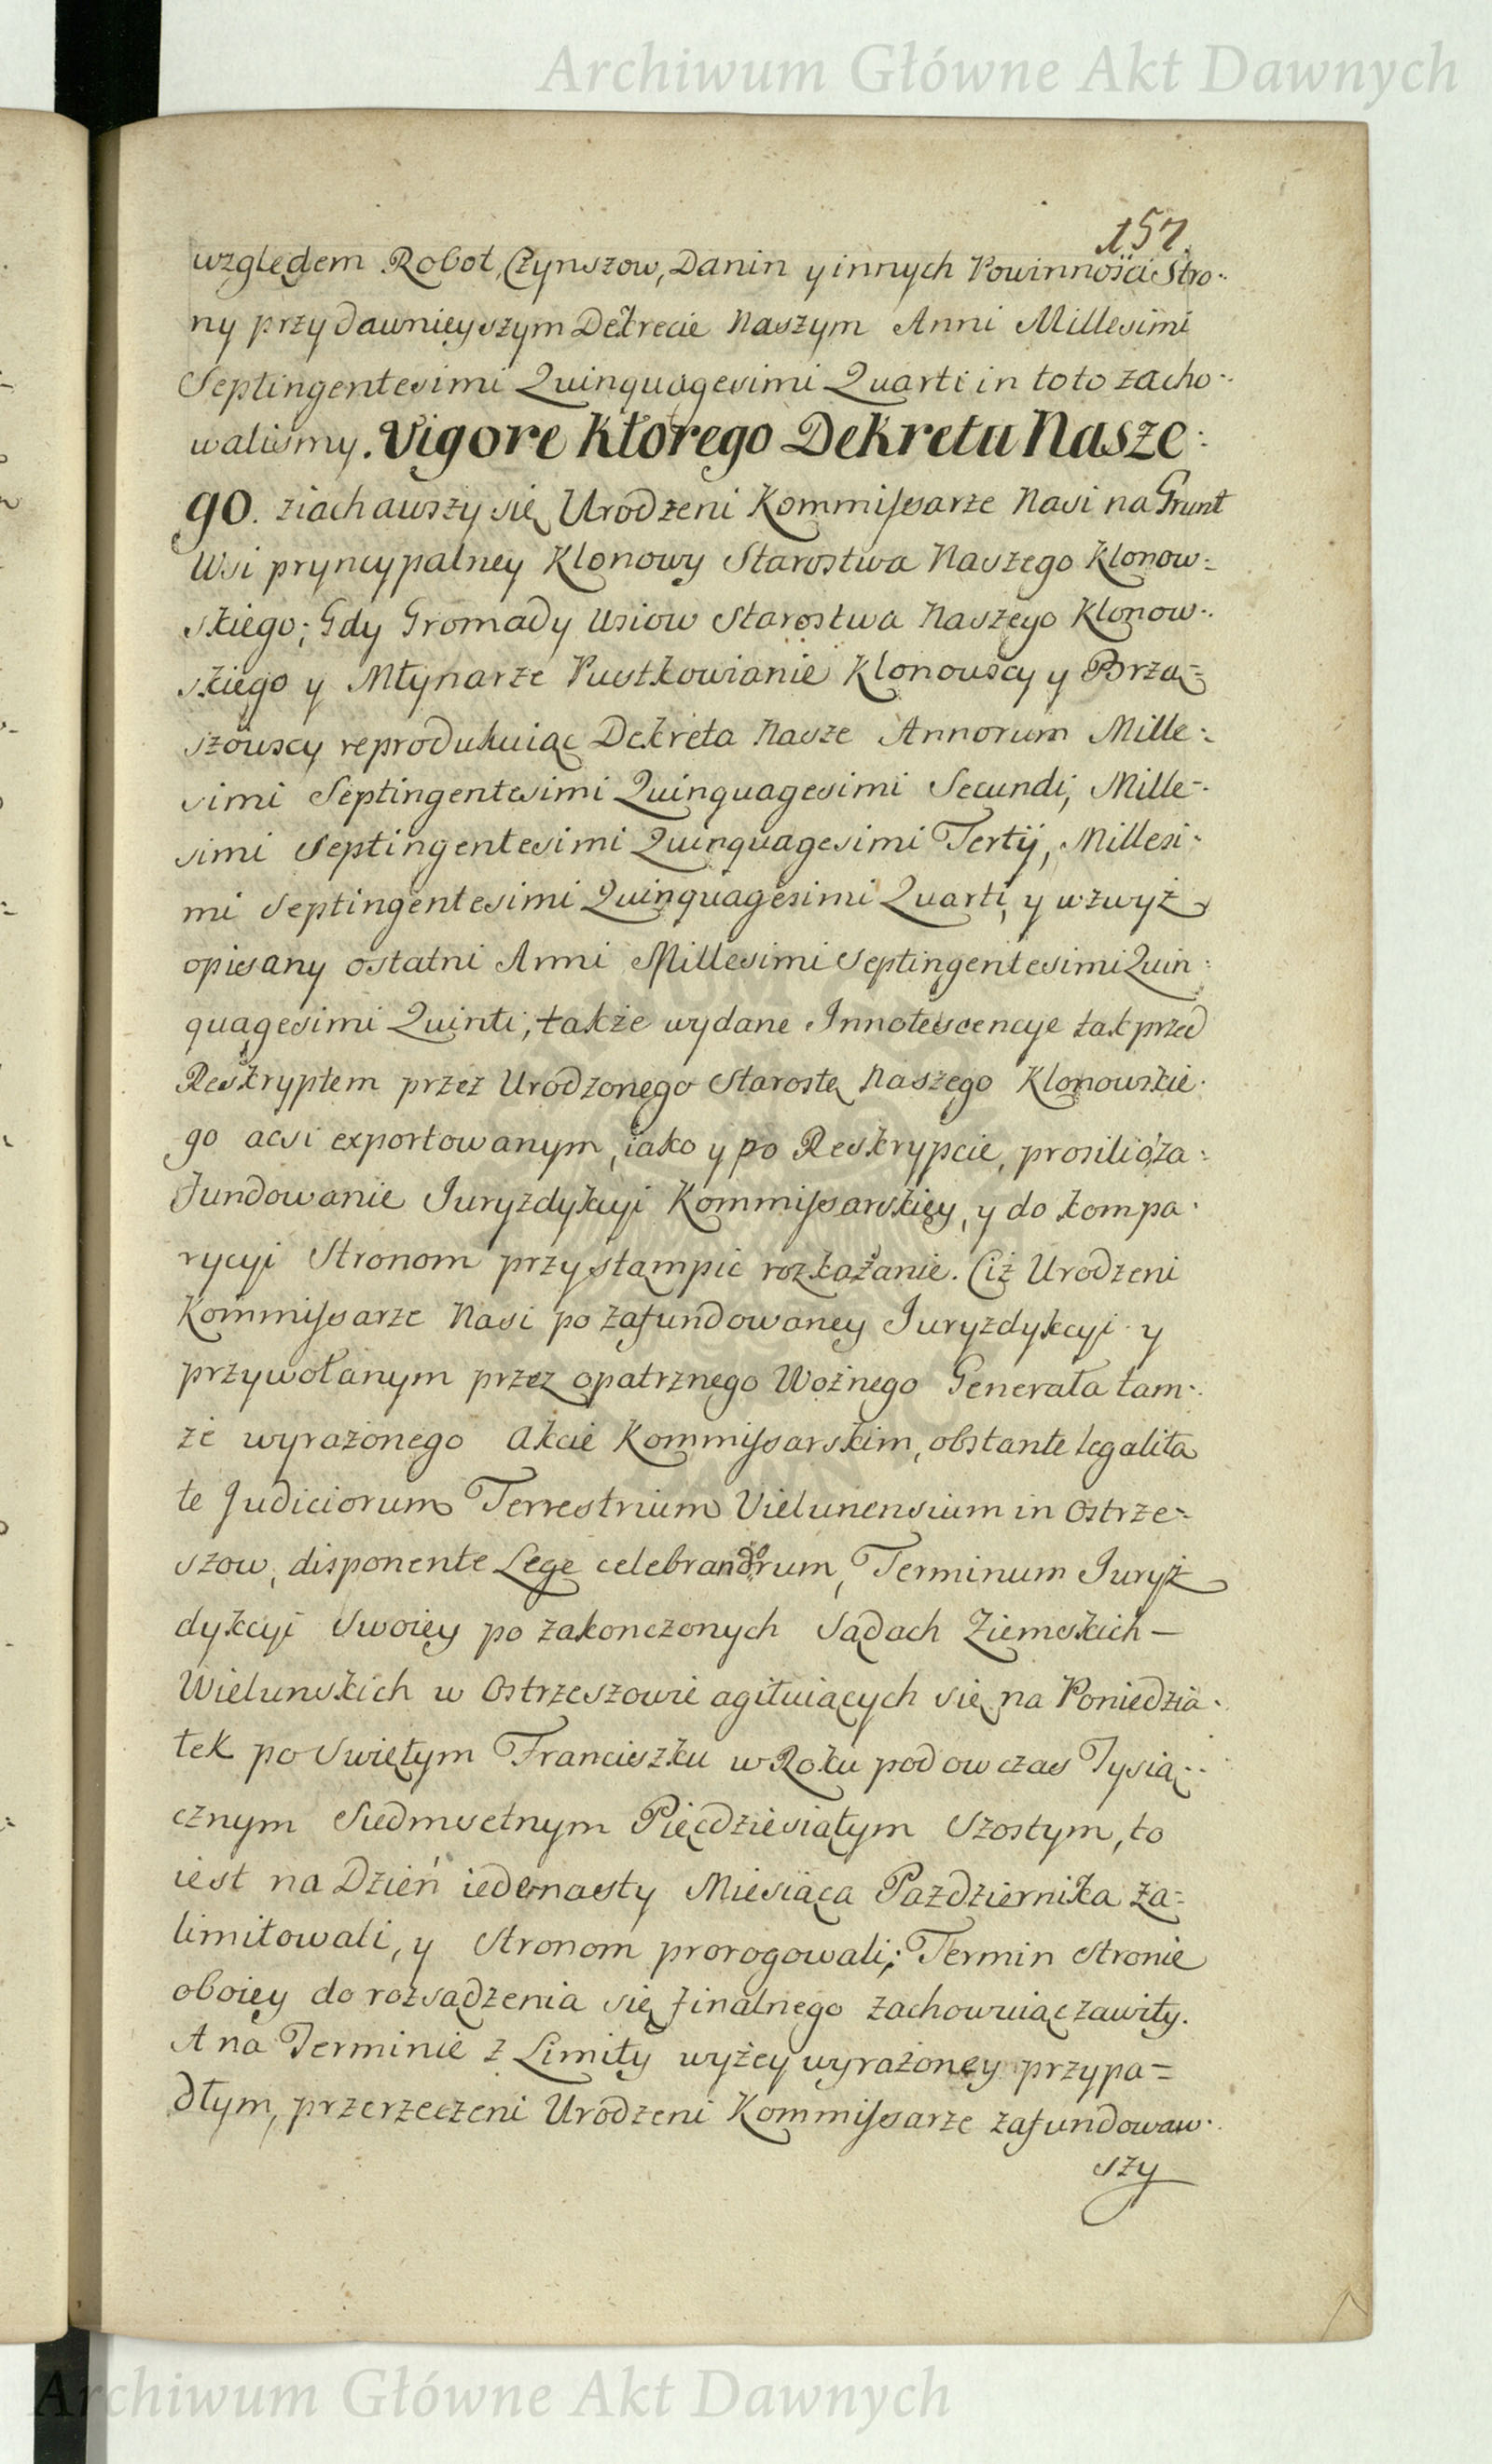 Archiwum Główne Akt Dawnych
157.
względem Robot, Czynszow, Danin y innych Powinności Stro-
ny przy dawnieyszym Dekrecie Naszym Anni Millesimi
Septingentesimi Quinquagesimi Quarti in toto zacho-
waliśmy. Vigore Ktorego Dekretu Nasze-
go. ziachawszy się Urodzeni Kommissarze Nasi na Grunt
Wsi pryncypalney Klonowy Starostwa Naszego Klonow-
skiego; Gdy Gromady Wsiow Starostwa Naszego Klonow-
skiego y Młynarze Pustkowianie Klonowscy y Brzą-
szowscy reprodukuiąc Dekreta Nasze Annorum Mille-
simi Septingentesimi Quinquagesimi Secundi, Mille-
simi Septingentesimi Quinquagesimi Tertij, Millesi-
mi Septingentesimi Quinquagesimi Quarti, y wzwyż
opisany ostatni Anni Millesimi Septingentesimi Quin-
quagesimi Quinti, także wydane Innotescencye tak przed
Reskryptem przez Urodzonego Starostę Naszego Klonowskie-
go acsi exportowanym, iako y po Reskrypcie, prosili o za-
fundowanie Juryzdykcyi Kommissarskiey, y do kompa-
rycyi Stronom przystąmpić rozkazanie. Ciż Urodzeni
Kommissarze Nasi po zafundowaney Juryzdykcyi y
przywołanym przez opatrznego Woźnego Generała tam-
że wyrażonego Akcie Kommissarskim, obstante legalita
te Judiciorum Terrestrium Vielunensium in Ostrze-
szow, disponente Lege celebrandorum, Terminum Juryz
dykcyi Swoiey po zakonczonych Sądach Ziemskich —
Wielunskich w Ostrzeszowie agituiących się na Poniedzia-
łek po Swiętym Franciszku w Roku podowczas Tysią-
cznym Siedmsetnym Pięcdziesiątym Szostym, to
iest na Dzień iedenasty Miesiąca Pazdziernika za-
limitowali, y Stronom prorogowali; Termin Stronie
oboiey do rozsądzenia się finalnego zachowuiąc zawity.
A na Terminie z Limity wyżey wyrażoney przypa-
dłym, przerzeczeni Urodzeni Kommissarze zafundowaw-
szy
Archiwum Główne Akt Dawnych